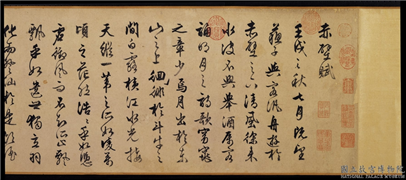 赤壁賦
壬戌之秋七月既望
蘇子與客汎舟遊於
赤壁之下清風徐來
水波不興舉酒屬客
誦明月之詩歌窈窕
之章少焉月出於東
山之上徘徊於斗牛之
間白露橫江水光接
天縱一葦之所如凌萬
頃之茫然浩浩乎如憑
虛御風而不知其所止飄
飄乎如遺世獨立羽
化而登仙於是飲酒
國立故宮博物院
NATIONAL PALACE MUSEUM